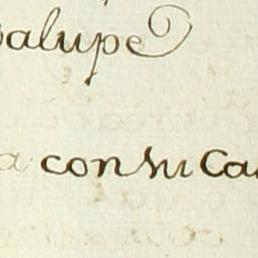 alupe
a con su Ca